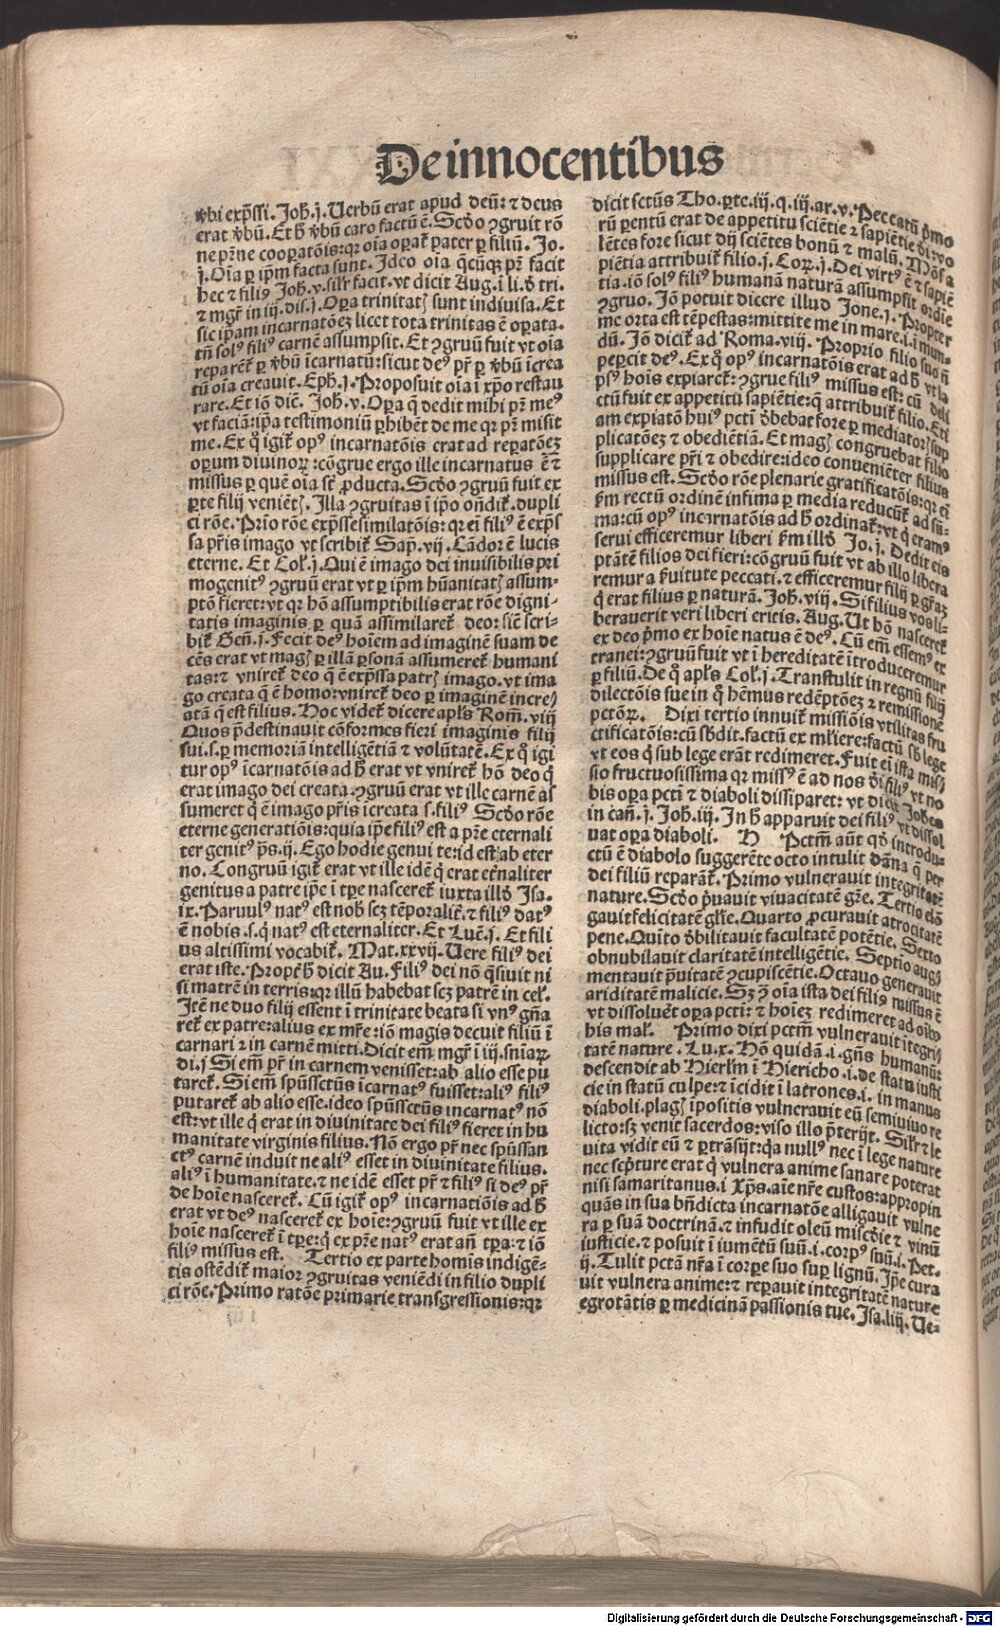 De innocentibus
v̓bi exp̃ssi. Joh̃. j. Uerbũ erat apud deũ: ⁊ deus
erat v̓bũ. Et h̃ v̓bũ caro factũ ẽ. Scd̓o ꝯgruit rõ
ne pr̃ne cooꝑatõis: qr oĩa oꝑat᷑ pater ꝑ filiũ. Jo.
j. Oĩa ꝑ ip̃m facta sunt. Ideo oĩa q̃cũqꝫ pr̃ facit
hec ⁊ filiꝰ Joh̃. v. sil̓r facit. vt dicit Aug. ĩ li. d̓ tri.
⁊ mgr̃ in iij. dis. j. Oꝑa trinitatꝭ sunt indiuisa. Et
sic ip̃am incarnatõeꝫ licet tota trinitas ẽ oꝑata.
tñ solꝰ filiꝰ carnẽ assumpsit. Et ꝯgruũ fuit vt oĩa
repararet᷑ ꝑ v̓bũ ĩcarnatũ: sicut deꝰ pr̃ ꝑ v̓bũ ĩcrea
tũ oĩa creauit. Eph̃. j. Proposuit oĩa i xp̃o restau
rare. Et iõ dic̃. Joh̃. v. Oꝑa q̃ dedit mihi pr̃ meꝰ
vt faciã: ip̃a testimoniũ ꝑhibẽt de me qr pr̃ misit
me. Ex q̊ igit᷑ opꝰ incarnatõis erat ad reꝑatõeꝫ
oꝑum diuinoꝝ: cõgrue ergo ille incarnatus ẽ ⁊
missus ꝑ quẽ oĩa sũt ꝓducta. Scd̓o ꝯgruũ fuit ex
ꝑte filij veniẽtꝭ. Illa ꝯgruitas ĩ ip̃o oñdit᷑. dupli
ci rõe. Prĩo rõe exp̃sse similatõis: qr ei filiꝰ ẽ exp̃s
sa pr̃is imago vt scribit᷑ Sap̃. vij. Cãdor ẽ lucis
eterne. Et Col̃. j. Qui ẽ imago dei inuisibilis pri
mogenitꝰ ꝯgruũ erat vt ꝑ ip̃m hũanitatꝭ assum-
ptõ fieret: vt qr hõ assumptibilis erat rõe digni-
tatis imaginis ꝑ quã assimilaret᷑ deo: sic̃ scri-
bit᷑ Geñ. j. Fecit deꝰ hoĩem ad imaginẽ suam de
cẽs erat vt magꝭ ꝑ illã ꝑsonã assumeret᷑ humani
tas: ⁊ vniret᷑ deo q̃ ẽ exp̃ssa patrꝭ imago. vt ima
go creata q̃ ẽ homo: vniret᷑ deo ꝑ imaginẽ incre
atã q̃ est filius. Hoc videt᷑ dicere apl̓s Rom̃. viij
Quos p̃destinauit cõformes fieri imaginis filij
sui. s. ꝑ memoriã intelligẽtiã ⁊ volũtatẽ. Ex q̊ igi
tur opꝰ ĩcarnatõis ad h̃ erat vt vniret᷑ hõ deo q̊
erat imago dei creata. ꝯgruũ erat vt ille carnẽ as
sumeret q̊ ẽ imago pr̃is ĩcreata s. filiꝰ Scd̓o rõe
eterne generatiõis: quia ip̃e filiꝰ est a pr̃e eternali
ter genitꝰ p̃s. ij. Ego hodie genui te: id est ab eter
no. Congruũ igit᷑ erat vt ille idẽ q̊ erat et̃naliter
genitus a patre ip̃e ĩ tp̃e nasceret᷑ iuxta illd̓ Isa.
ix. Paruulꝰ natꝰ est nob̃ scꝫ tẽporalit̃. ⁊ filiꝰ datꝰ
ẽ nobis. s. q̊ natꝰ est eternaliter. Et Luc̃. j. Et fili
us altissimi vocabit᷑. Mat. xxvij. Uere filiꝰ dei
erat iste. Propt̃ h̃ dicit Au. Filiꝰ dei nõ q̃siuit ni
si matrẽ in terris: qr illũ habebat scꝫ patrẽ in cel̃.
Itẽ ne duo filij essent ĩ trinitate beata si vnꝰ gña
ret᷑ ex patre: alius ex mr̃e: iõ magis decuit filiũ ĩ
carnari ⁊ in carnẽ mitti. Dicit em̃ mgr̃ ĩ iij. sniaꝝ.
di. j Si em̃ pr̃ in carnem venisset: ab alio esse pu
taret᷑. Si em̃ spũssctũs ĩcarnatꝰ fuisset: aliꝰ filiꝰ
putaret᷑ ab alio esse. ideo spũssctũs incarnatꝰ nõ
est: vt ille q̊ erat in diuinitate dei filiꝰ fieret in hu
manitate virginis filius. Nõ ergo pr̃ nec spũssan
ctꝰ carnẽ induit ne aliꝰ esset in diuinitate filius.
aliꝰ ĩ humanitate. ⁊ ne idẽ esset pr̃ ⁊ filiꝰ si deꝰ pr̃
de hoĩe nasceret᷑. Cũ igit᷑ opꝰ incarnatiõis ad h̃
erat vt deꝰ nasceret᷑ ex hoĩe: ꝯgruũ fuit vt ille ex
hoĩe nasceret᷑ ĩ tp̃e: q̊ ex pr̃e natꝰ erat añ tp̃a: ⁊ iõ
filiꝰ missus est. Tertio ex parte homis indigẽ-
tis ostẽdit᷑ maior ꝯgruitas veniẽdi in filio dupli
ci rõe. Primo ratõe primarie transgressionis: qr
dicit sctũs Tho. ꝑte. iij. q. iij. ar. v. Peccatũ p̃mo
rũ pentũ erat de appetitu sciẽtie ⁊ sapiẽtie di: vo
lẽtes fore sicut dij sciẽtes bonũ ⁊ malũ. Mõs a
piẽtia attribuit᷑ filio. j. Coꝝ. j. Dei virtꝰ ẽ ⁊ sapiẽ
tia. iõ solꝰ filiꝰ humanã naturã assumpsit ordie
ꝯgruo. Iõ potuit dicere illud Jone. j. Propter
me orta est tẽpestas: mittite me in mare. i. ĩ mun-
dũ. Iõ dicit᷑ ad Roma. viij. Proprio filio suo ñ
peꝑcit deꝰ. Ex q̊ opꝰ incarnatõis erat ad h̃ vt la
psꝰ hoĩs expiaret᷑: ꝯgrue filiꝰ missus est: cũ deli
ctũ fuit ex appetitu sapiẽtie: q̃ attribuit᷑ filio. Eti
am expiatõ huiꝰ pcti d̓bebat fore ꝑ mediatorꝭ sup
plicatõeꝫ ⁊ obediẽtiã. Et magꝭ congruebat filio
supplicare pr̃i ⁊ obedire: ideo conueniẽter filius
missus est. Scd̓o rõe plenarie gratificatõis: qr ei
s̓m rectũ ordinẽ infima ꝑ media reducũt᷑ ad sũ-
ma: cũ opꝰ incarnatõis ad h̃ ordinat᷑: vt q̊ eramꝰ
serui efficeremur liberi s̓m illd̓ Jo. j. Dedit eis
ptãtẽ filios dei fieri: cõgruũ fuit vt ab illo libera
remur a s̓uitute peccati. ⁊ efficeremur filij ꝑ gr̃aꝫ
q̊ erat filius ꝑ naturã. Joh̃. viij. Si filius vos li-
berauerit veri liberi eritis. Aug. Ut hõ nasceret᷑
ex deo p̃mo ex hoĩe natus ẽ deꝰ. Cũ em̃ essemꝰ ex
tranei: ꝯgruũ fuit vt ĩ hereditatẽ ĩtroduceremur
ꝑ filiũ. De q̊ apl̓s Col̃. j. Transtulit in regnũ filij
dilectõis sue in q̊ hẽmus redẽptõeꝫ ⁊ remissionẽ
pctõꝝ. Dixi tertio innuit᷑ missiõis vtilitas fru
ctificatõis: cũ sb̓dit. factũ ex ml̓iere: factũ sb̓ lege
vt eos q̊ sub lege erãt redimeret. Fuit ei ista mis-
sio fructuosissima qr missꝰ ẽ ad nos d̓i filiꝰ vt no
bis oꝑa pcti ⁊ diaboli dissiparet: vt dicit Johes
in cañ. j. Joh̃. iij. In h̃ apparuit dei filiꝰ vt dissol
uat oꝑa diaboli. H Pctm̃ aũt qd̓ introdu-
ctũ ẽ diabolo suggerẽte octo intulit dãna q̃ per
dei filiũ reparãt᷑. Primo vulnerauit integritatẽ
nature. Scd̓o p̃uauit viuacitatẽ gr̃e. Tertio elõ
gauit felicitatẽ gl̓ie. Quarto ꝓcurauit atrocitatẽ
pene. Quĩto d̓bilitauit facultatẽ potẽtie. Sexto
obnubilauit claritatẽ intelligẽtie. Septio aug
mentauit p̃uitatẽ ꝯcupiscẽtie. Octauo generauit
ariditatẽ malicie. Sꝫ ꝯ̃ oĩa ista dei filiꝰ missus ẽ
vt dissoluẽt oꝑa pcti: ⁊ hoĩeꝫ redimeret ad oĩbꝰ
his mal̃. Primo dixi pctm̃ vulnerauit ĩtegri
tatẽ nature. Lu. x. Hõ quidã. i. gñs humanũ:
descendit ab Hierl̓m ĩ Hiericho. i. de statu iusti
cie in statũ culpe: ⁊ ĩcidit ĩ latrones. i. in manus
diaboli. plagꝭ ĩpositis vulnerauit eũ semiuiuo re
licto: sꝫ venit sacerdos: viso illo p̃terijt. Sil̓r ⁊ le
uita vidit eũ ⁊ ꝑtrãsijt: qa nullꝰ nec ĩ lege nature
nec sc̃pture erat q̊ vulnera anime sanare poterat
nisi samaritanus. i xp̃s. aĩe nr̃e custos: appropin
quãs in sua bñdicta incarnatõe alligauit vulne
ra ꝑ suã doctrinã. ⁊ infudit oleũ misc̓die ⁊ vinũ
iusticie. ⁊ posuit ĩ iumẽtũ suũ. i. corpꝰ suũ. i. Pet.
ij. Tulit pctã nr̃a ĩ corꝑe suo suꝑ lignũ. Ip̃e cura
uit vulnera anime: ⁊ reꝑauit integritatẽ nature
egrotãtis ꝑ medicinã passionis tue. Isa. liij. Ue-
Digitalisierung gefördert durch die Deutsche Forschungsgemeinschaft - DFG